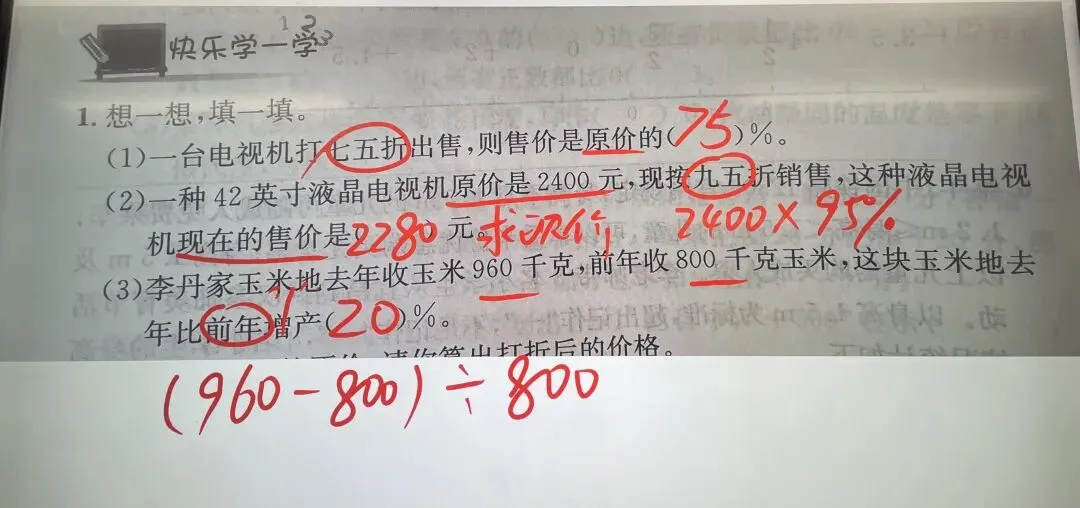 快乐学一学
1 2 3
1. 想一想,填一填。
(1)一台电视机打七五折出售,则售价是原价的(75)%。
(2)一种 42 英寸液晶电视机原价是 2400 元,现按九五折销售,这种液晶电视
机现在的售价是(2280)元。 求现价 2400×95%
(3)李丹家玉米地去年收玉米 960 千克,前年收 800 千克玉米,这块玉米地去
年比前年增产(20)%。
请你算出打折后的价格。
(960-800)÷800